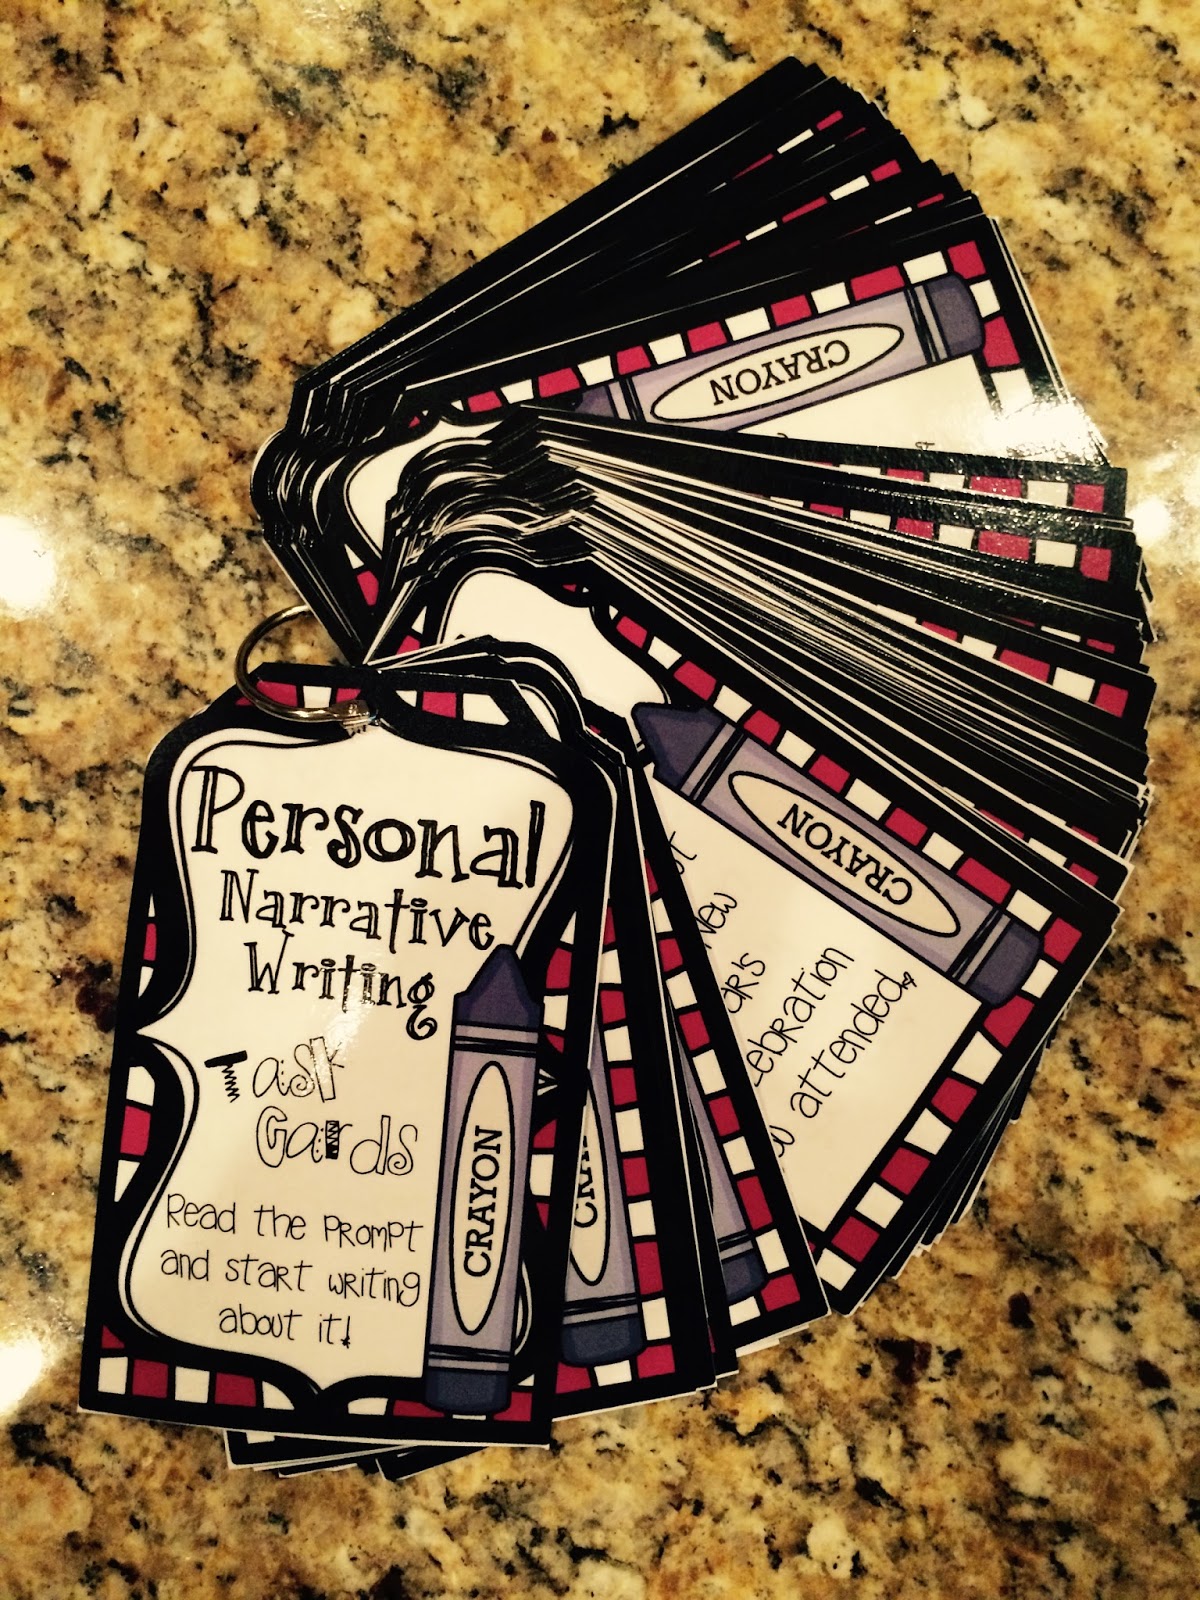 Personal
Narrative
Writing
Task
Cards
Read the prompt
and start writing
about it!
CRAYON
CRAYON
New
celebration
attended.
CRAYON